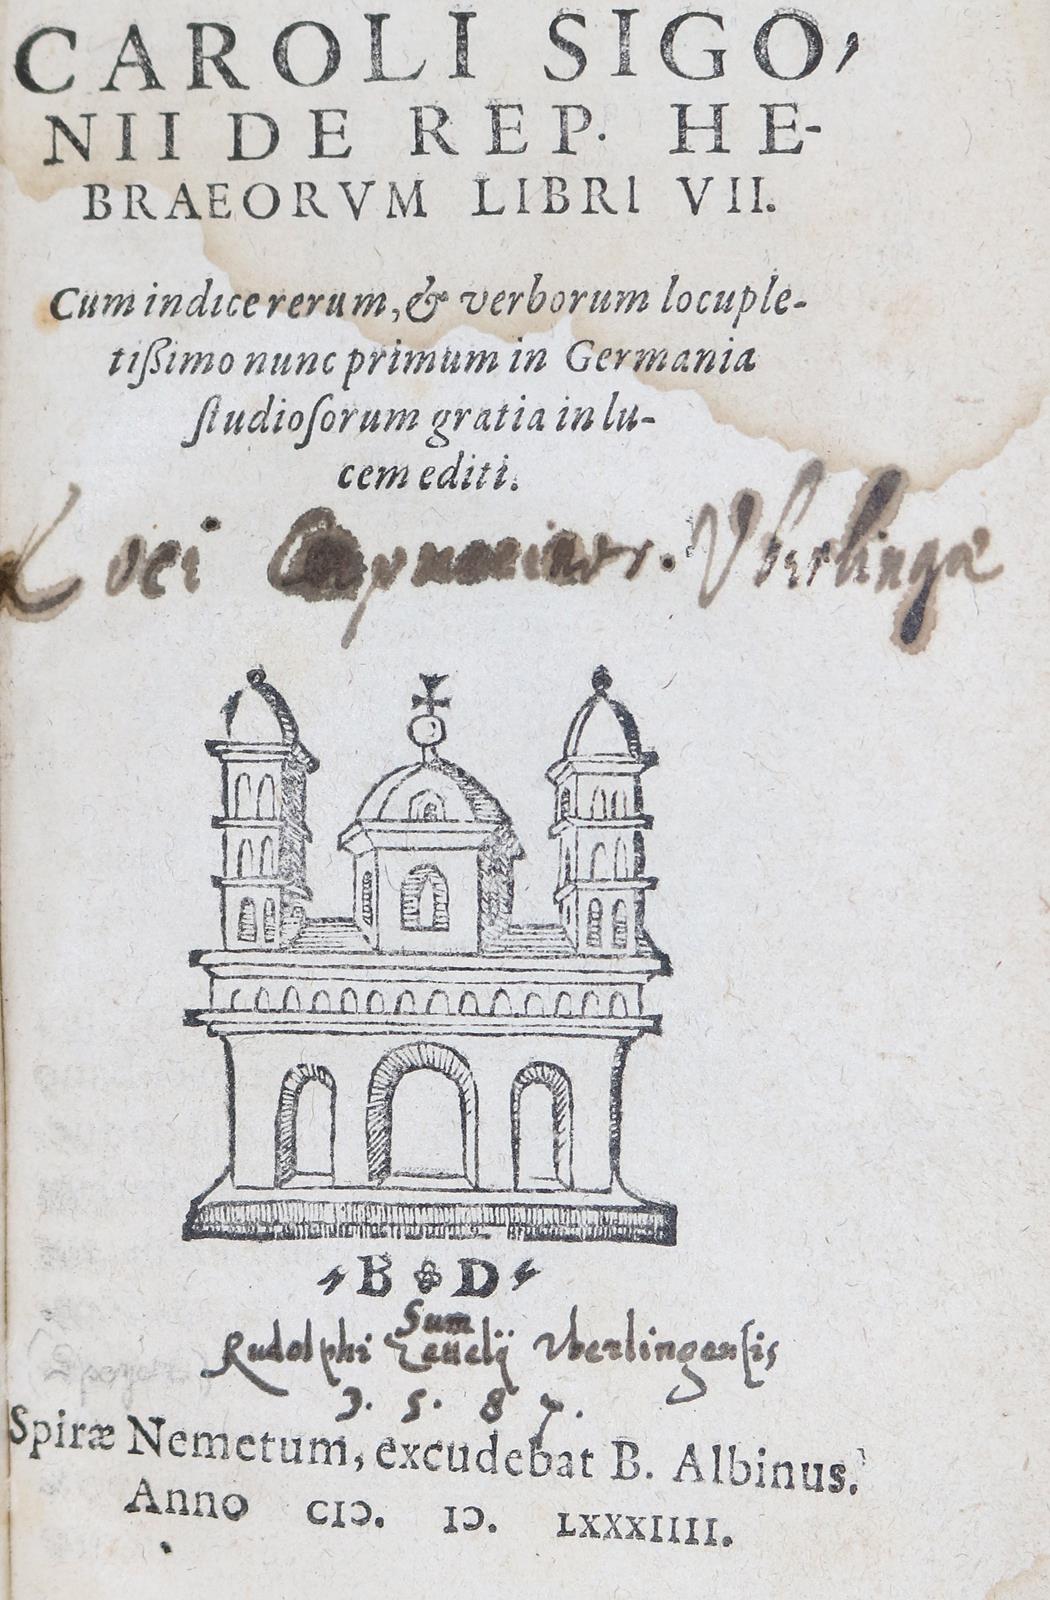 CAROLI SIGO,
NII DE REP. HE-
BRAEORVM LIBRI VII.
Cum indice rerum, & verborum locuple-
tißimo nunc primum in Germania
ſtudioſorum gratia in lu-
cem editi.
Loci Vberlingæ
B D
Sum
Rudolphi Vberlingenſis
1. 5. 8 7.
Spiræ Nemetum, excudebat B. Albinus.
Anno CIↃ. IↃ. LXXXIIII.